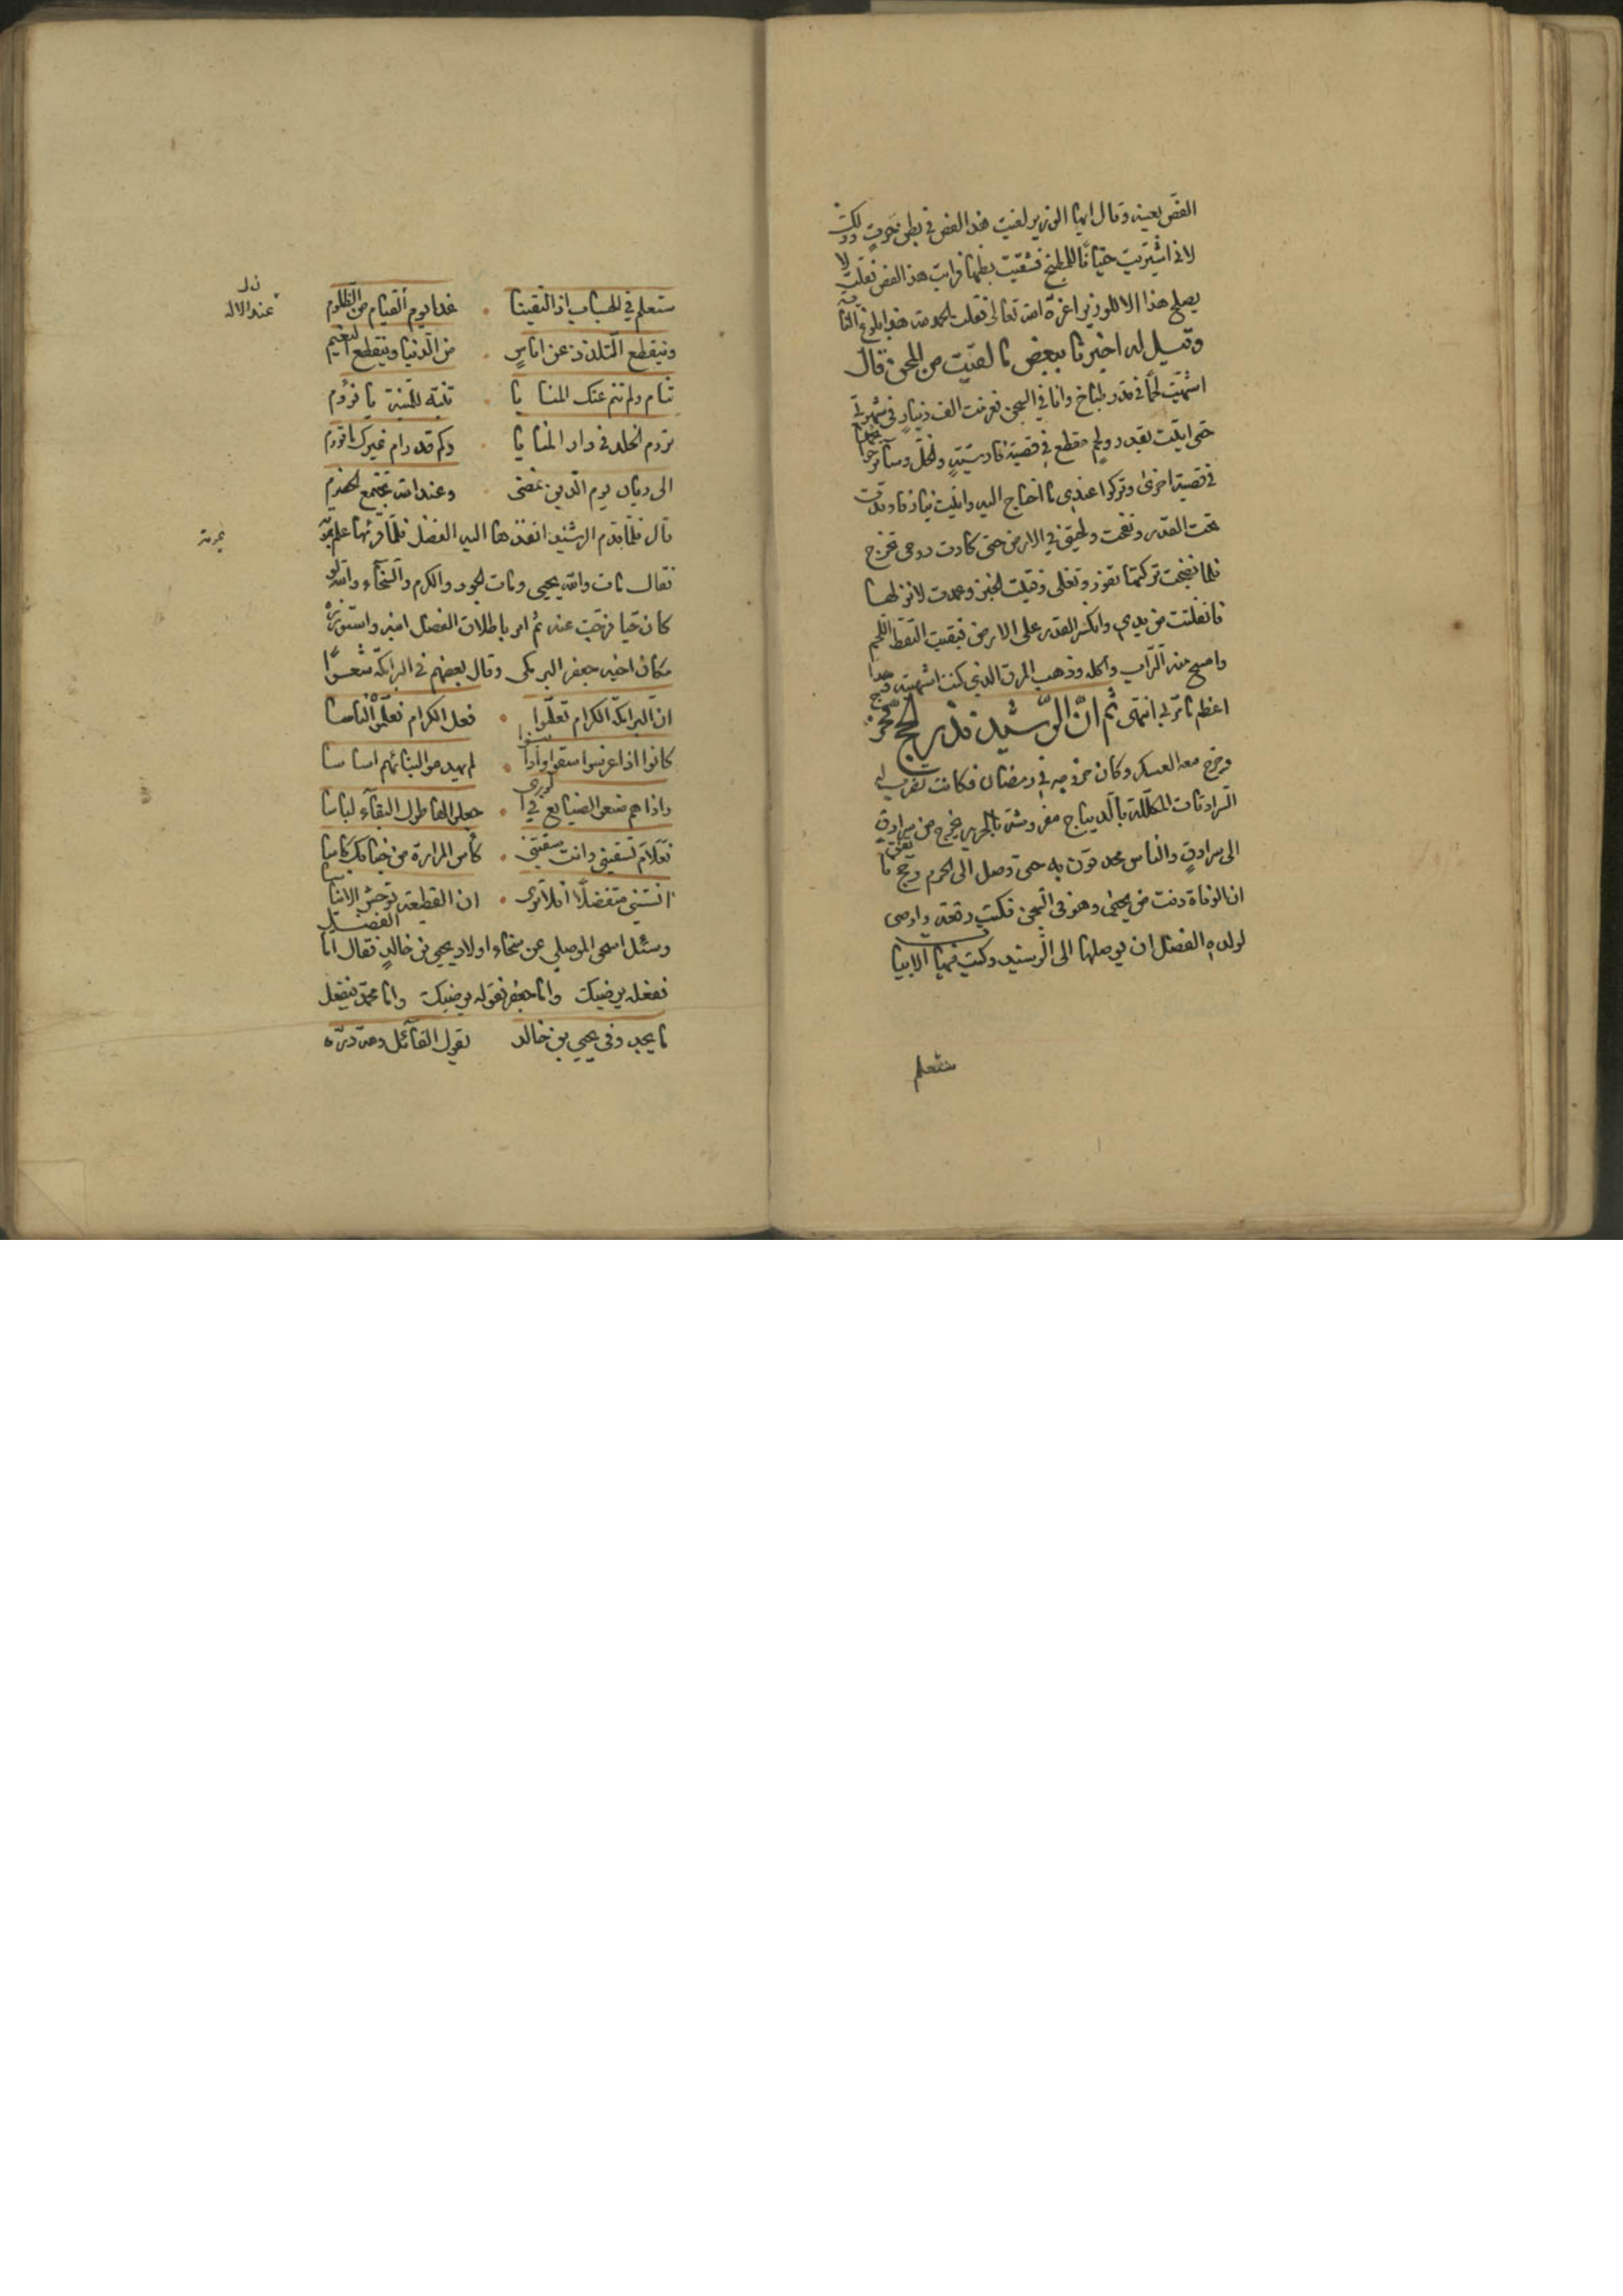 الفص بعينه وقال ايها الوزير لقيت هذا الفص في بطن حوت وذلك
لاني اشتريت حيتانا للمطبخ فشققت بطنها فرايت هذا الفص فقلت لا
يصلح هذا الا للوزير اعزه الله تعالى فقلت الحمد لله هذا بلوغ الغاية
وقيل له اخبرنا ببعض ما لقيت من المحن قال
اشتهيت لحما في قدر طباخ وانا في السجن فغرمت الف دينار في شهوتي
حتى اتيت بقدر ولحم مقطع في قصبة فارسية والخل وسائر حوائجها
في قصبة اخرى وتركوا عندي ما احتاج اليه واتيت بنار فاوقدت
تحت القدر ونفخت ولحيتي في الارض حتى كادت روحي تخرج
فلما نضجت تركتها تفور وتغلي وفتيت الخبز وعمدت لانزلها
فانفلتت من يدي وانكسر القدر على الارض فبقيت التقط اللحم
وامسح منه التراب وآكله وذهب المرق الذي كنت اشتهيته وهذا
اعظم ما مر بي انتهى ثم ان الرشيد نذر الحج
وخرج معه العسكر وكان خروجه في رمضان فكانت تضرب له
السرادقات المكللة بالديباج مفروشة بالحرير يخرج من سرادق
الى سرادق والناس محدقون به حتى وصل الى الحرم وحج
ان الوفاة دنت من يحيى وهو في السجن فكتب رقعة واوصى
لولده الفضل ان يوصلها الى الرشيد وكتب فيها الابيات
ستعلم
ستعلم في الحساب اذا التقينا . غدا يوم القيام من الظلوم
عند الاله
وينقطع التلذذ عن اناس . من الدنيا وينقطع النعيم
تنام ولم تنم عنك المنايا . تنبه للمنية يا نؤوم
تروم الخلد في دار المنايا . وكم قد رام غيرك ما تروم
الى ديان يوم الدين نمضي . وعند الله تجتمع الخصوم
قال فلما قدم الرشيد انفذها اليه الفضل فلما قرئها علم
فقال مات والله يحيى ومات الجود والكرم والسخاء والله لو
كان حيا فرجت عنه ثم امر باطلاق الفضل ابنه واستوزره
مكان اخيه جعفر البرمكي وقال بعضهم في البرامكة شعرا
ان البرامكة الكرام تعلموا . فعل الكرام فعلموه الناسا
كانوا اذا غرسوا سقوا واذا بنوا . لم يهدموا لبنائهم اساسا
واذا هم صنعوا الصنايع في الورى . جعلوا لها طول البقاء لباسا
فعلام تسقيني وانت سقيتني . كأس المرارة من جفائك كاسا
انستني متفضلا افلا ترى . ان القطيعة توحش الايناسا
وسئل اسحق الموصلي عن سخاء اولاد يحيى بن خالد فقال اما الفضل
ففعله يرضيك واما جعفر فقوله يرضيك واما محمد فيفعل
ما يجد وفي يحيى بن خالد يقول القائل ولله دره